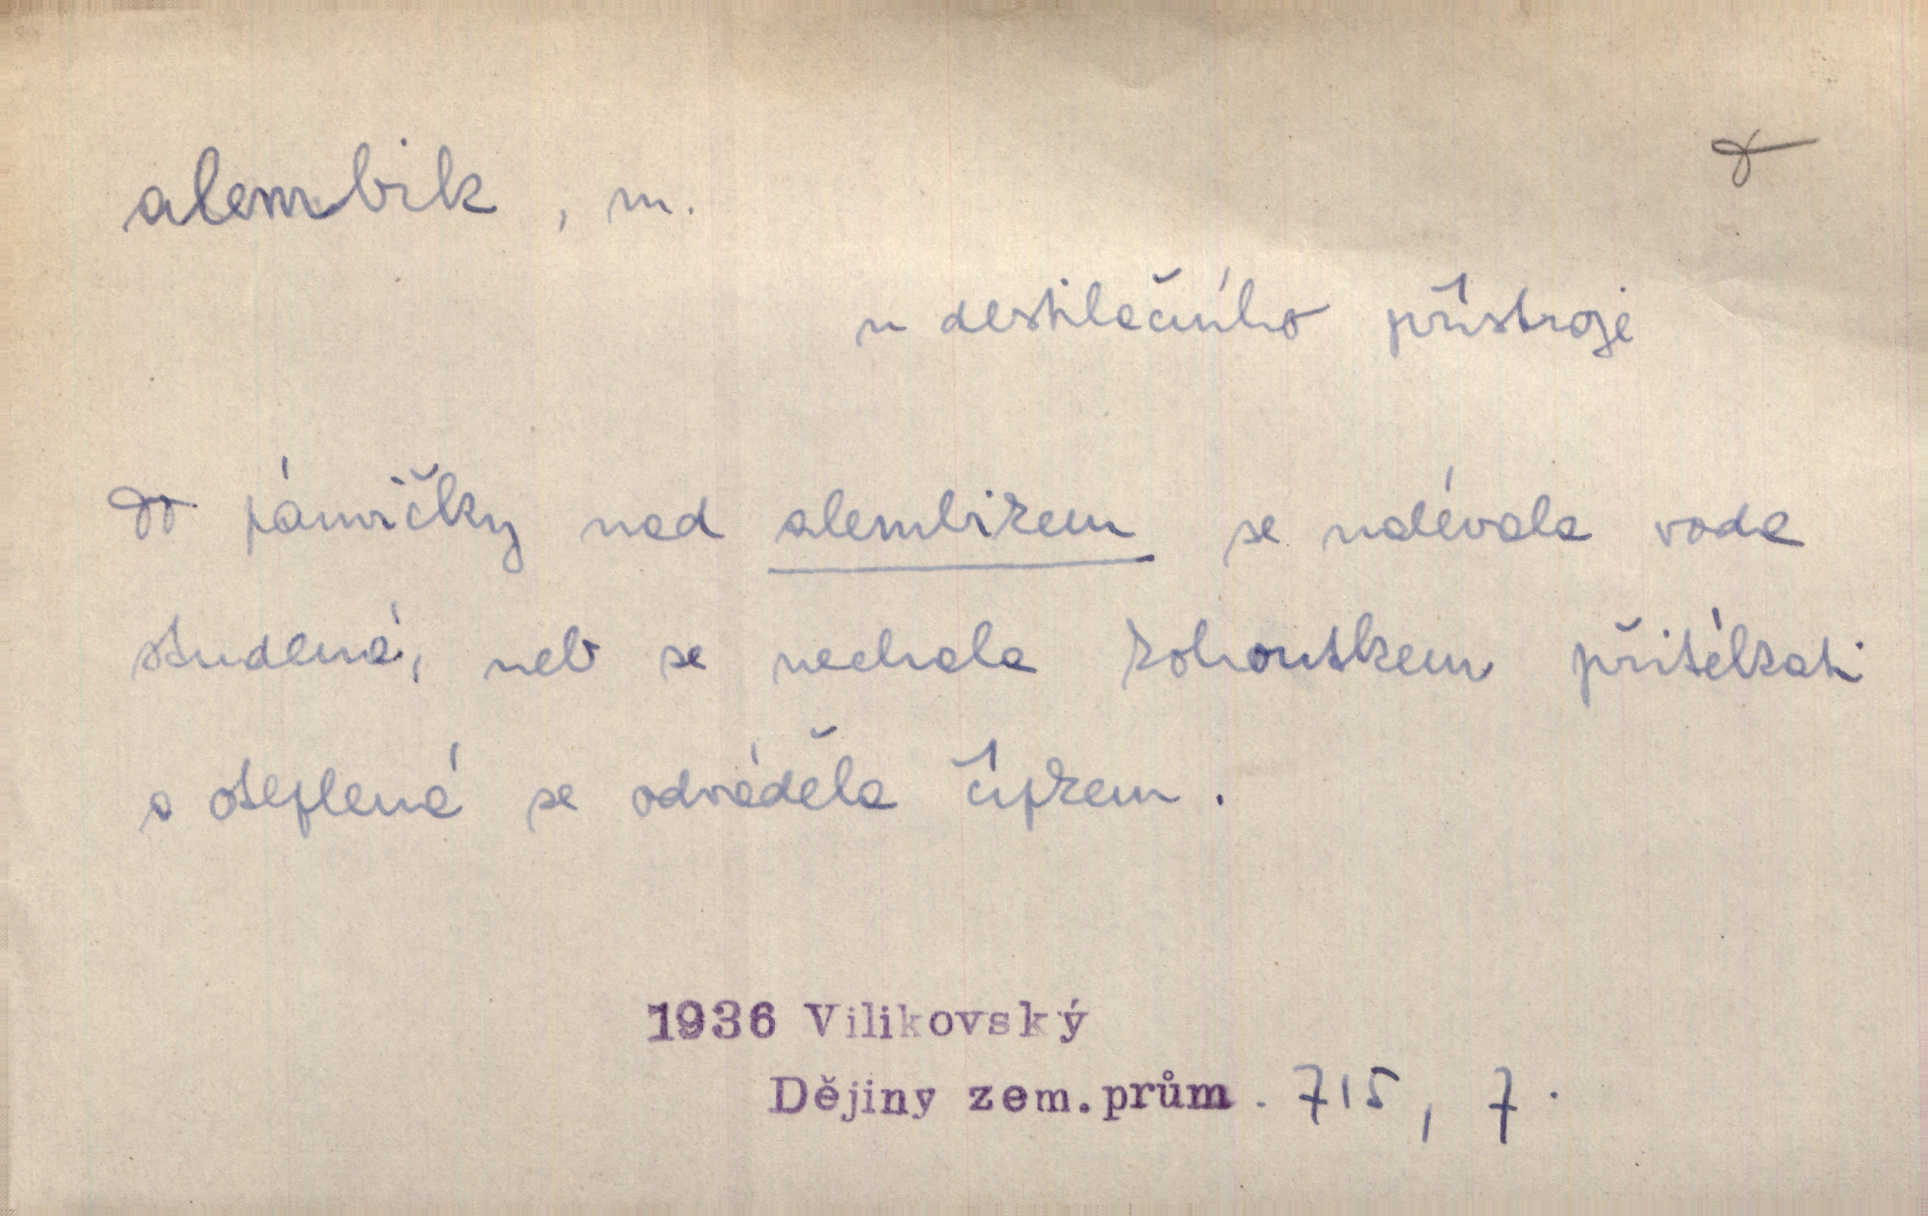 alembik, m.
u destilačního přístroje
Do pánvičky nad alembikem se nalévala voda
studená, neb se nechala kohoutkem přitékati
a oteplená se odváděla čípkem.
1936 Vilikovský
Dějiny zem.prům. 715, 7.